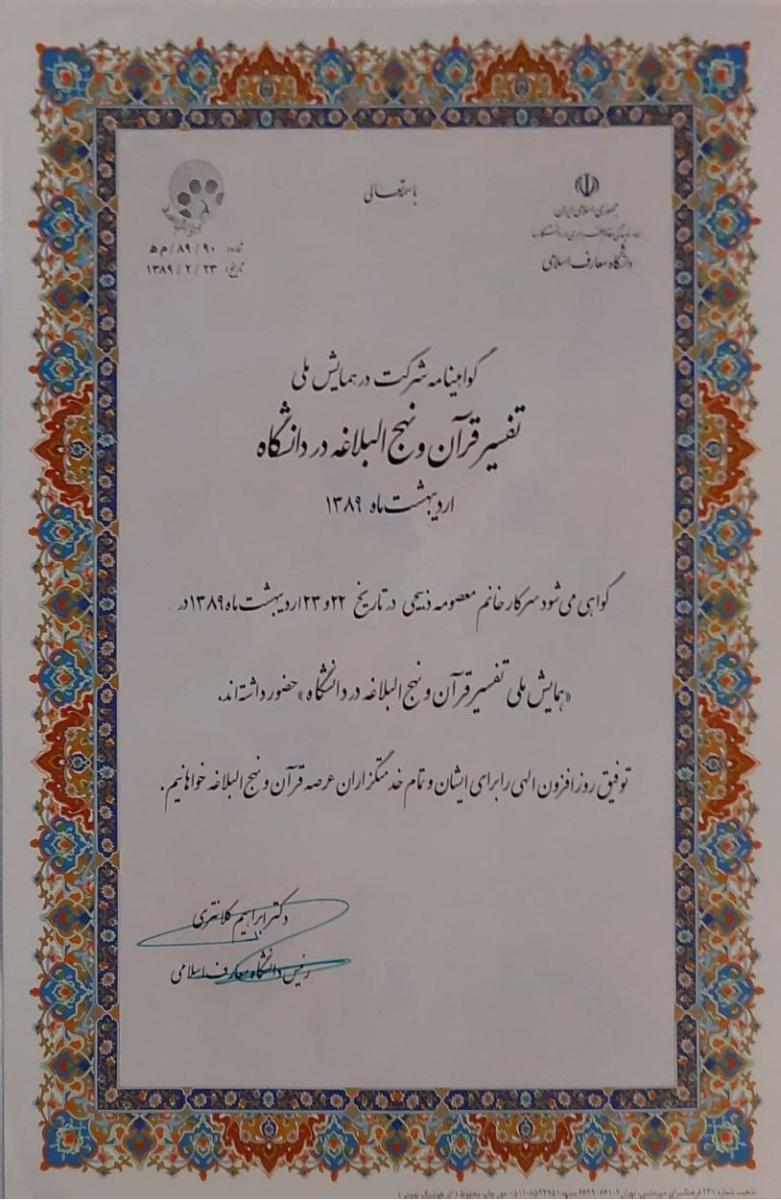 باسمه‌تعالی
جمهوری اسلامی ایران
نهاد نمایندگی مقام معظم رهبری در دانشگاه‌ها
دانشگاه معارف اسلامی
شماره: ۹۰ / ۸۹ / م ه
تاریخ: ۲۳ / ۲ / ۱۳۸۹
گواهینامه شرکت در همایش ملی
تفسیر قرآن و نهج البلاغه در دانشگاه
اردیبهشت ماه ۱۳۸۹
گواهی می شود سرکار خانم معصومه ذبیحی در تاریخ ۲۲ و ۲۳ اردیبهشت ماه ۱۳۸۹ در
«همایش ملی تفسیر قرآن و نهج البلاغه در دانشگاه» حضور داشته‌اند.
توفیق روز افزون الهی را برای ایشان و تمام خدمتگزاران عرصه قرآن و نهج البلاغه خواهانیم.
دکتر ابراهیم کلانتری
رئیس دانشگاه معارف اسلامی